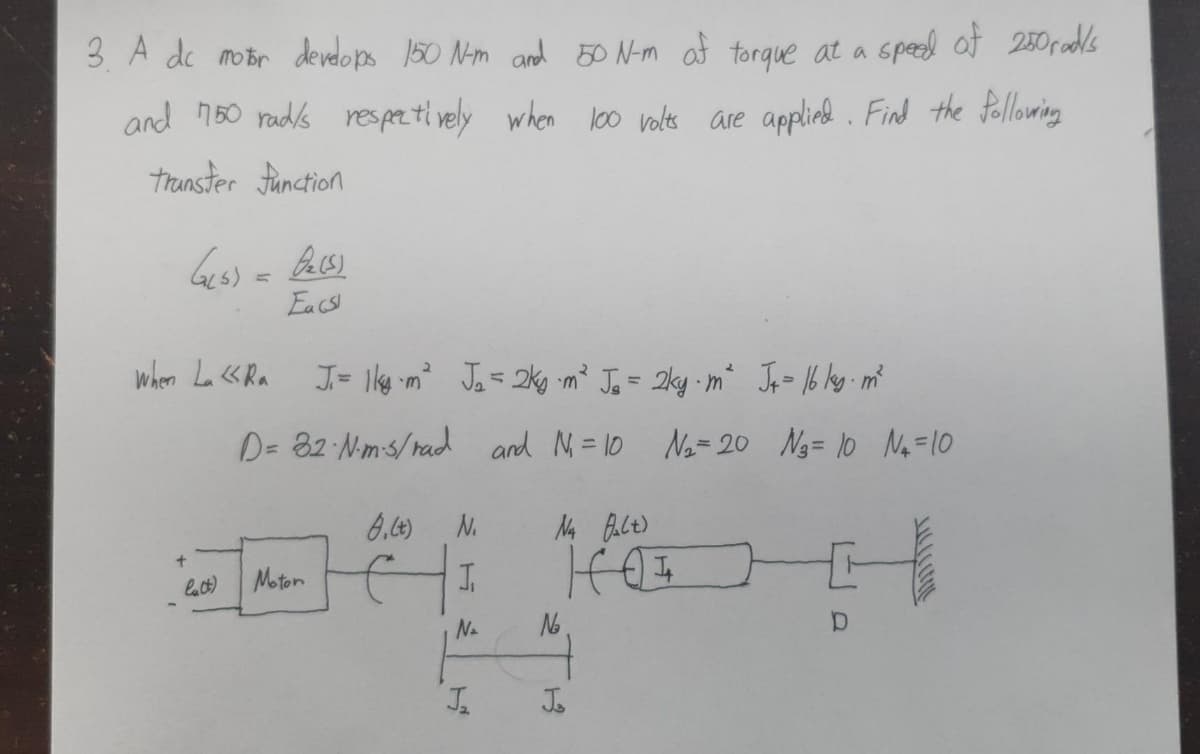 3. A dc motor develops 150 N-m and 50 N-m of torque at a speed of 250 rad/s
and 750 rad/s respectively when 100 volts are applied. Find the following
transfer function
G(s) = θ₂(s) / Ea(s)
when La << Ra J₁ = 1kg·m² J₂ = 2kg·m² J₃ = 2kg·m² J₄ = 16 kg·m²
D = 32·N·m·s/rad and N₁ = 10 N₂ = 20 N₃ = 10 N₄ = 10
θ₁(t) N₁ N₄ θ₂(t)
+
ea(t) Motor J₁ J₄
-
N₂ N₃ D
J₂ J₃